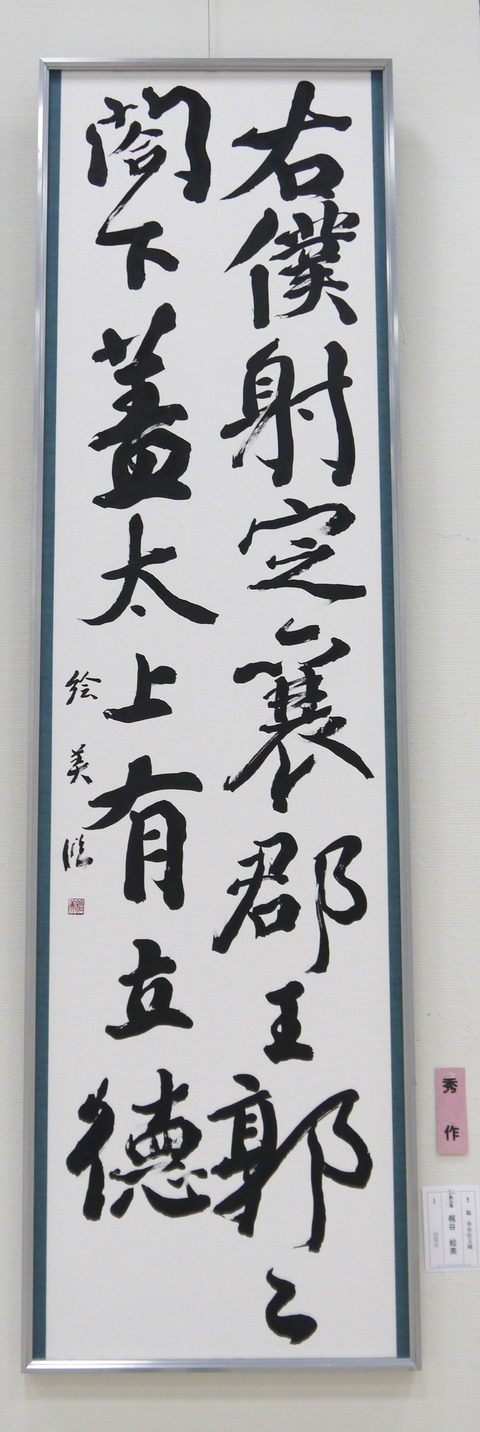 右僕射定襄郡王郭公
閤下蓋太上有立德
絵美臨
秀作
梶谷 絵美